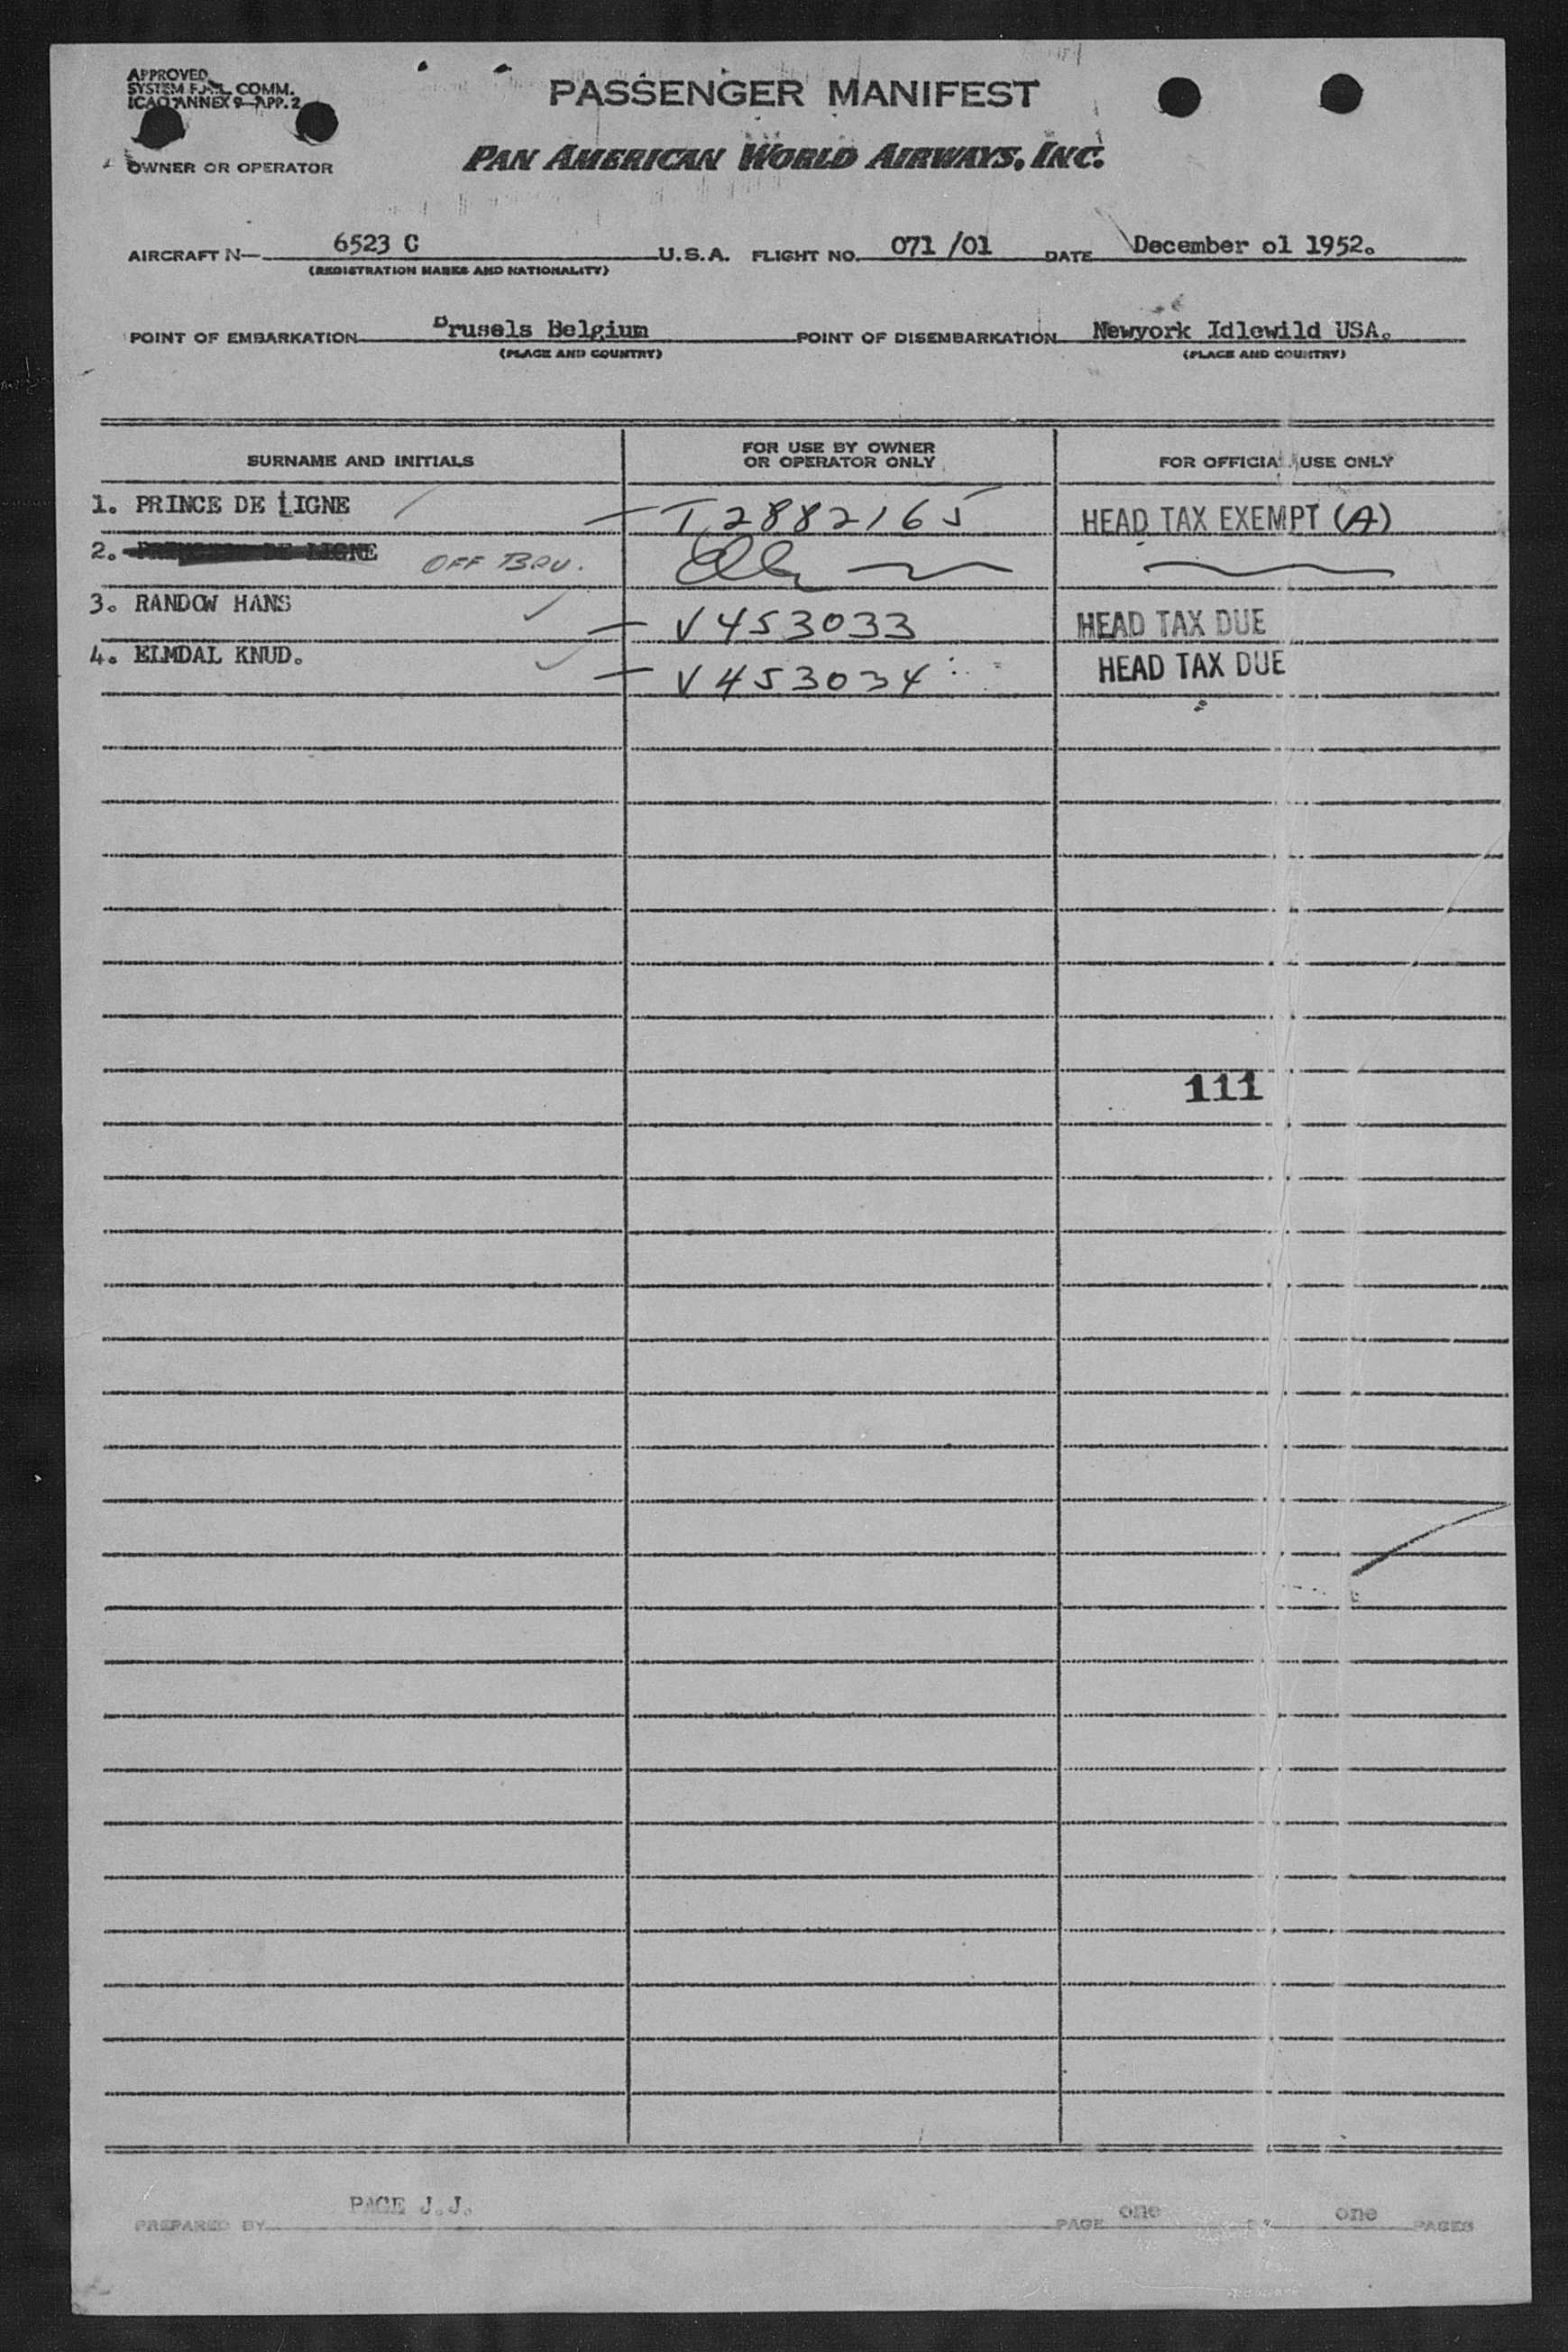 APPROVED
SYSTEM COMM.
ICAO ANNEX 9-APP. 2
PASSENGER MANIFEST
OWNER OR OPERATOR
PAN AMERICAN WORLD AIRWAYS, INC.
AIRCRAFT N— 6523 C U.S.A. FLIGHT NO. 071 /01 DATE December o1 1952.
(REGISTRATION MARKS AND NATIONALITY)
POINT OF EMBARKATION Brusels Belgium POINT OF DISEMBARKATION Newyork Idlewild USA.
(PLACE AND COUNTRY) (PLACE AND COUNTRY)
SURNAME AND INITIALS FOR USE BY OWNER OR OPERATOR ONLY FOR OFFICIAL USE ONLY
1. PRINCE DE LIGNE — T2882165 HEAD TAX EXEMPT (A)
2. DE LIGNE OFF BRU.
3. RANDOW HANS — V453033 HEAD TAX DUE
4. ELMDAL KNUD. — V453034 HEAD TAX DUE
111
PREPARED BY PAGE J.J. PAGE one OF one PAGES